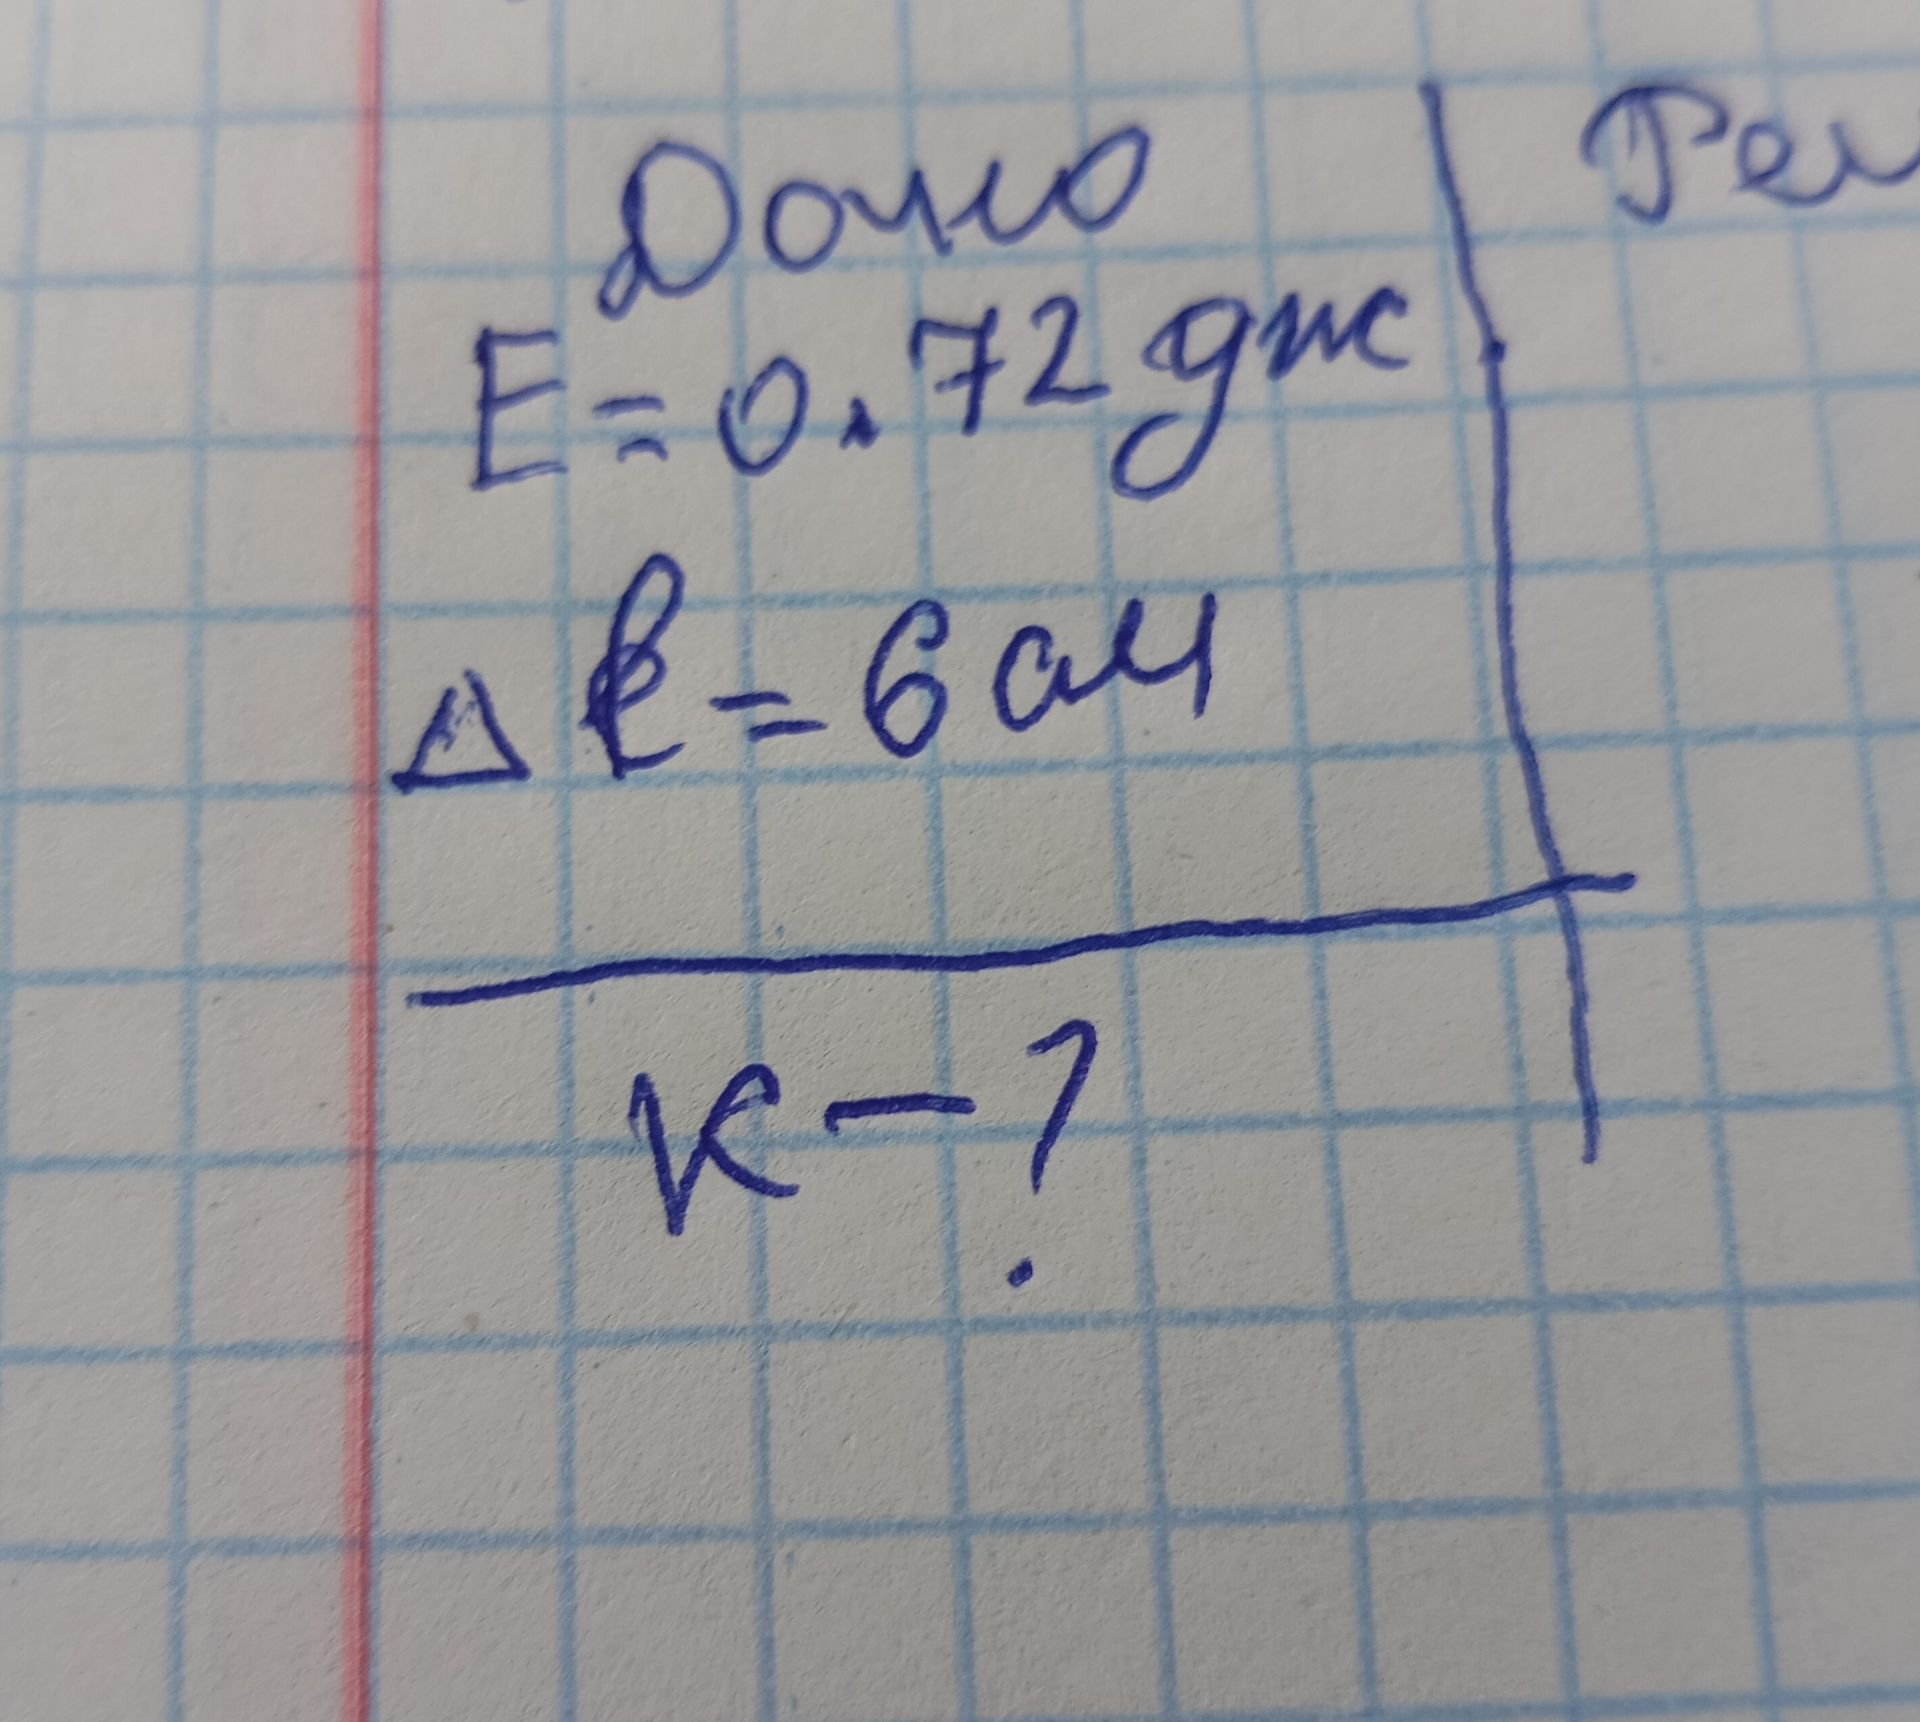 Дано
E=0.72 дж
Δℓ=6 см
K-?